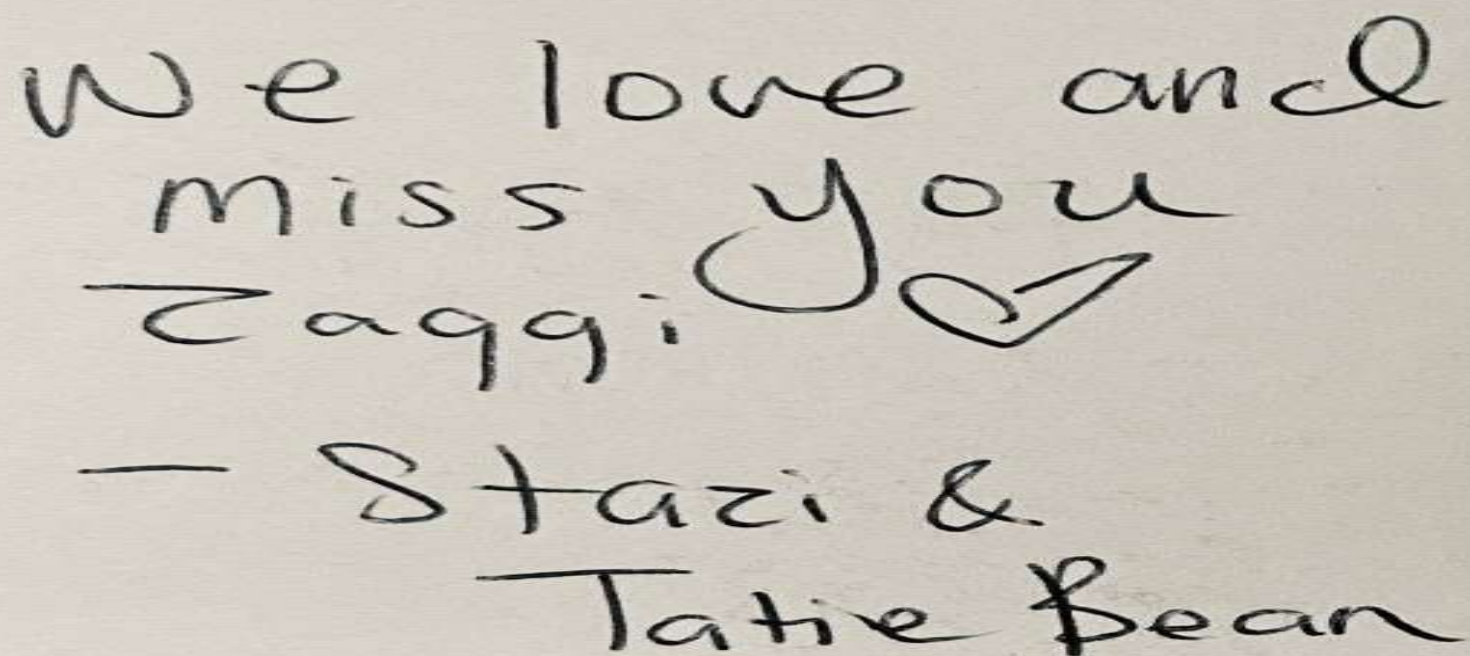 We love and
miss you
Zaggi ♡
- Stazi &
Tatie Bean